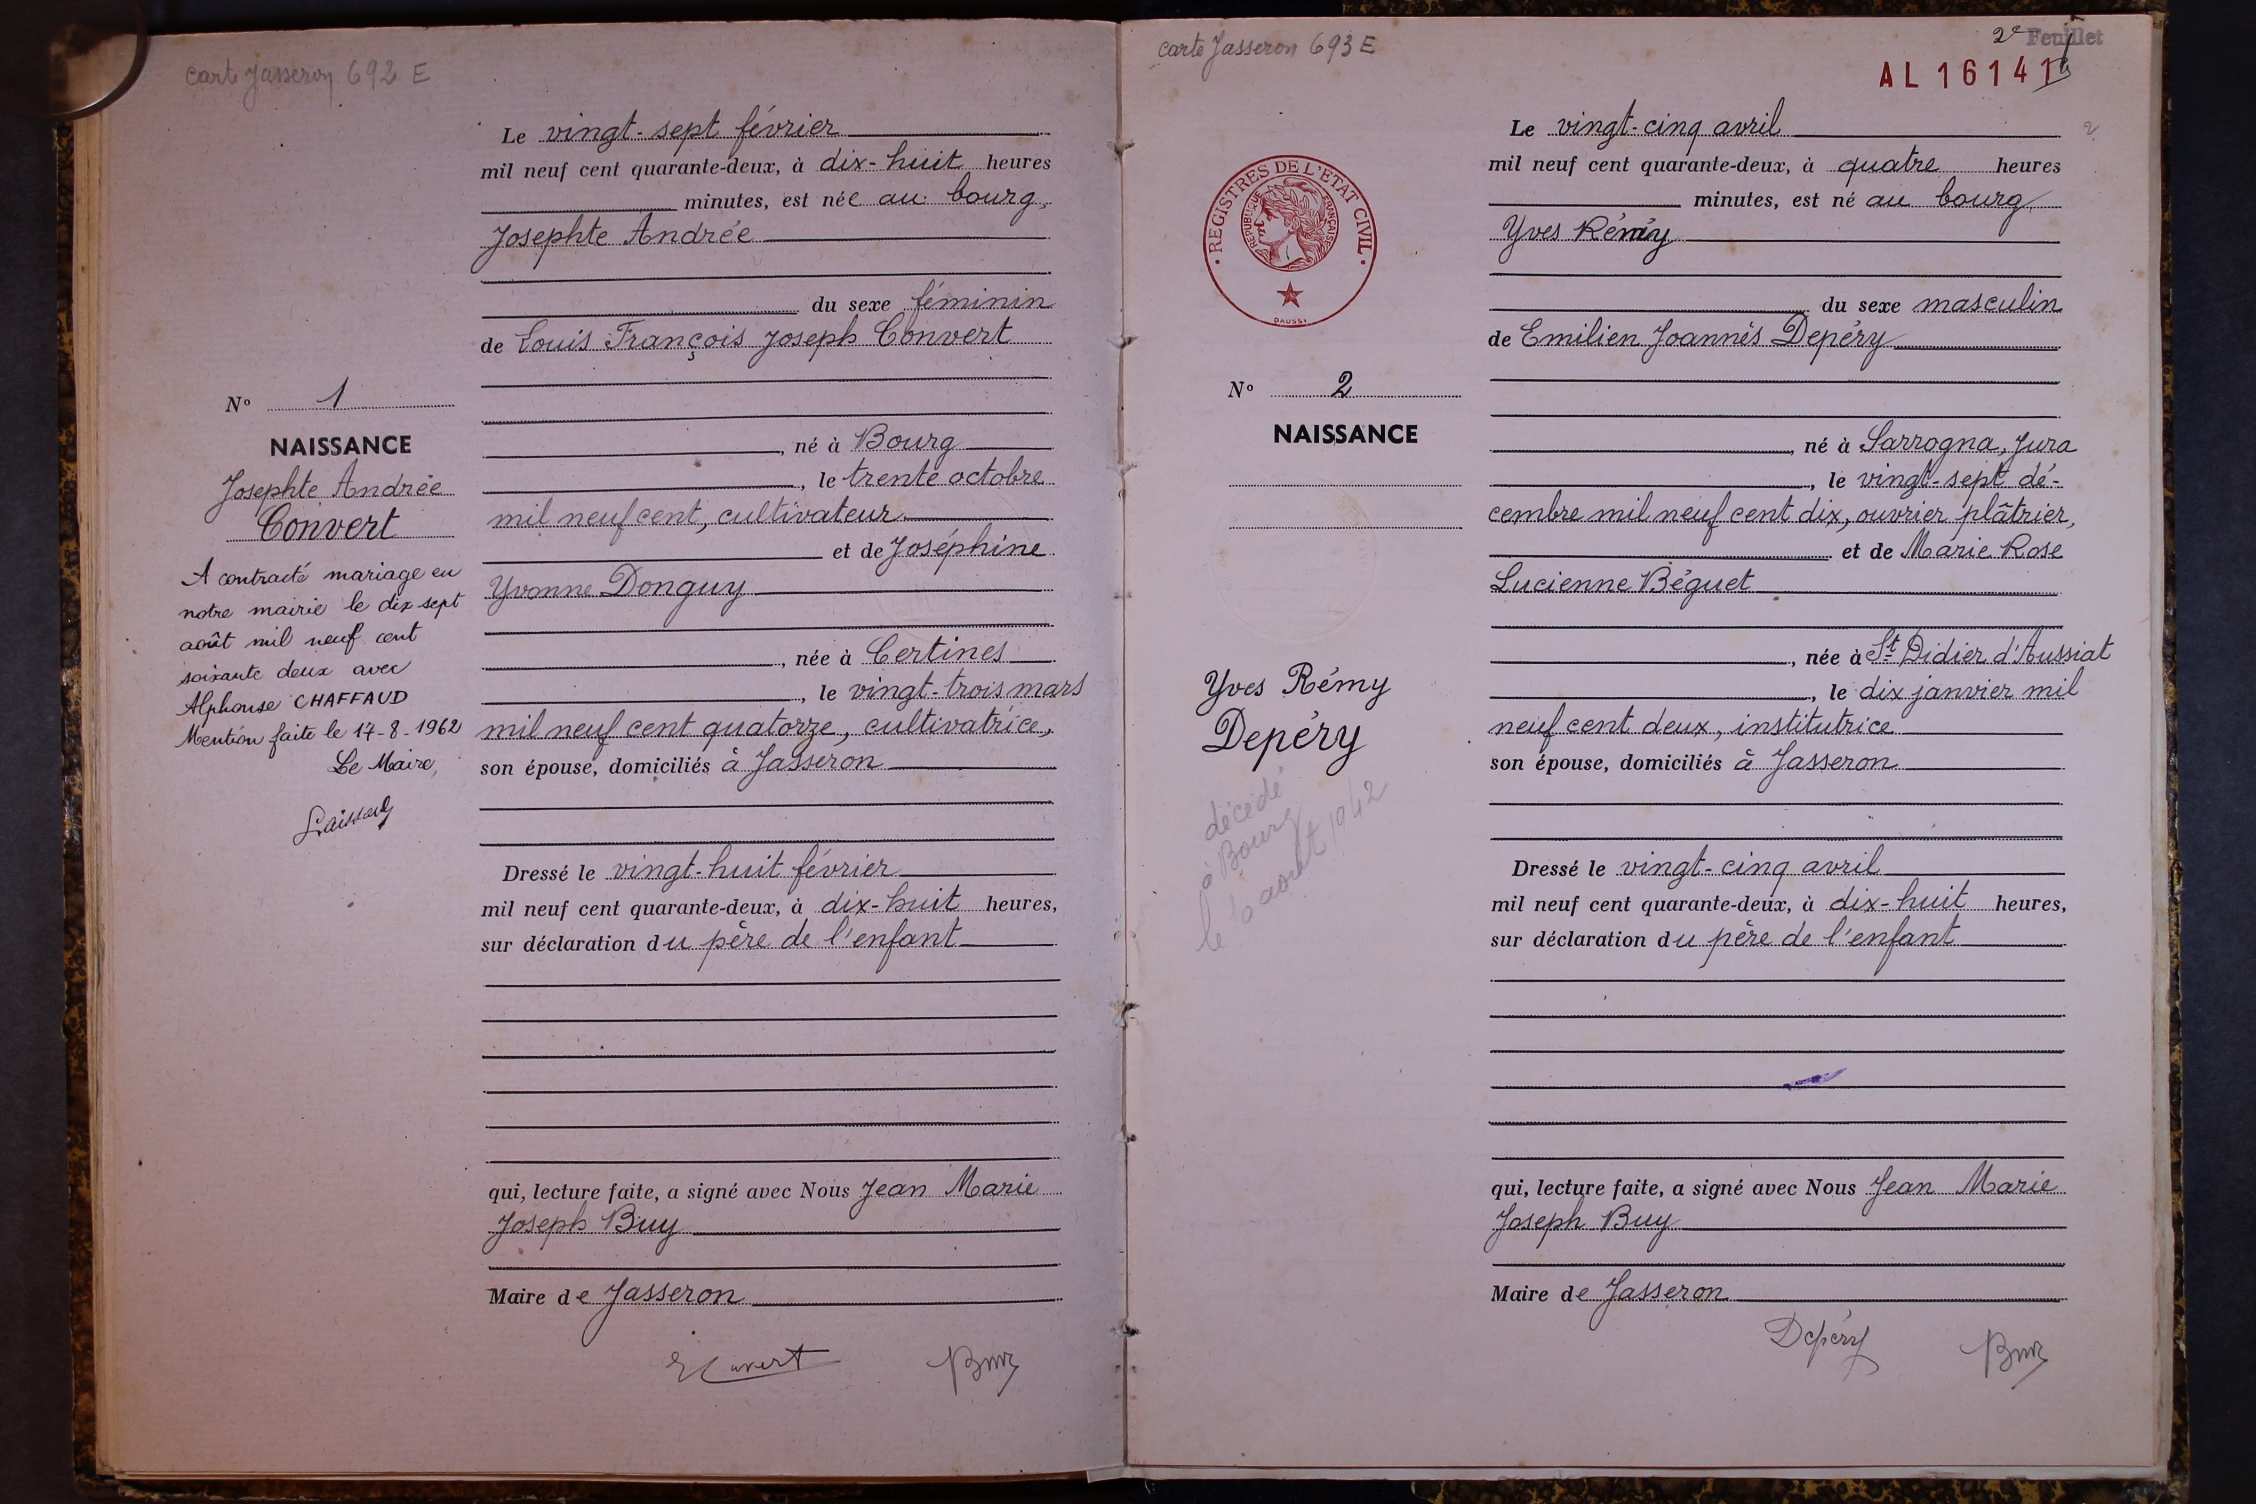 carte Jasseron 692 E
Le vingt-sept février
mil neuf cent quarante-deux, à dix-huit heures
minutes, est née au bourg,
Josephte Andrée
du sexe féminin
de Louis François Joseph Convert
, né à Bourg
, le trente octobre
mil neuf cent, cultivateur
et de Joséphine
Yvonne Donguy
, née à Certines
, le vingt-trois mars
mil neuf cent quatorze, cultivatrice,
son épouse, domiciliés à Jasseron
Dressé le vingt-huit février
mil neuf cent quarante-deux, à dix-huit heures,
sur déclaration du père de l'enfant
qui, lecture faite, a signé avec Nous Jean Marie
Joseph Buy
Maire de Jasseron
Buy
N° 1
NAISSANCE
Josephte Andrée
Convert
A contracté mariage en
notre mairie le dix sept
août mil neuf cent
soixante deux avec
Alphonse CHAFFAUD
Mention faite le 17-8-1962
Le Maire,
carte Jasseron 693 E
2e Feuillet
AL 16141
2
REGISTRES DE L'ETAT CIVIL
REPUBLIQUE FRANÇAISE
DAUSSY
Le vingt-cinq avril
mil neuf cent quarante-deux, à quatre heures
minutes, est né au bourg
Yves Rémy
du sexe masculin
de Emilien Joannès Depéry
, né à Sarrogna, Jura
, le vingt-sept dé-
cembre mil neuf cent dix, ouvrier plâtrier,
et de Marie Rose
Lucienne Béguet
, née à St Didier d'Aussiat
, le dix janvier mil
neuf cent deux, institutrice
son épouse, domiciliés à Jasseron
Dressé le vingt-cinq avril
mil neuf cent quarante-deux, à dix-huit heures,
sur déclaration du père de l'enfant
qui, lecture faite, a signé avec Nous Jean Marie
Joseph Buy
Maire de Jasseron
Depéry Buy
N° 2
NAISSANCE
Yves Rémy
Depéry
décédé
à Bourg
le août 1942